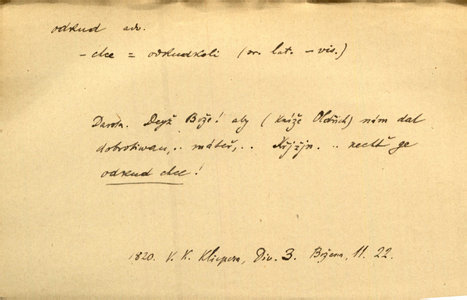 odkud adv.
– chce = odkudkoli (sr. lat. –vis.)
Dorota. Dejž Bože! aby (kníže Oldřich) nám dal
dobrotiwau,.. máteř,.. .. nechť ge
odkud chce!
1820. V. K. Klicpera, Div. 3. Božena, II. 22.